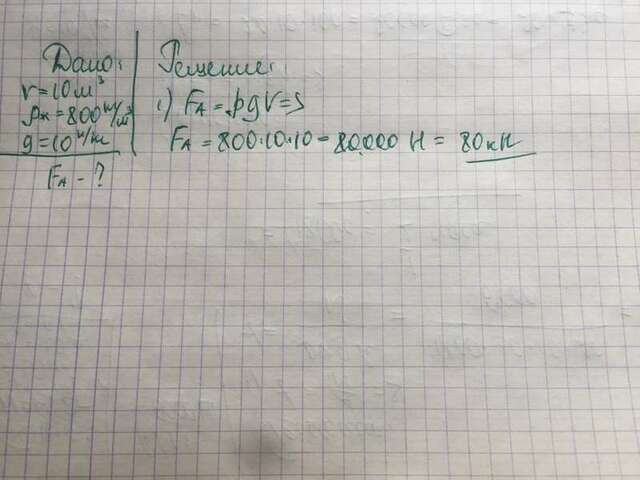 Дано:
V = 10 м³
ρж = 800 кг/м³
g = 10 н/кг
FА - ?
Решение:
1) FА = ρgV = >
FА = 800·10·10 = 80.000 Н = 80 кН